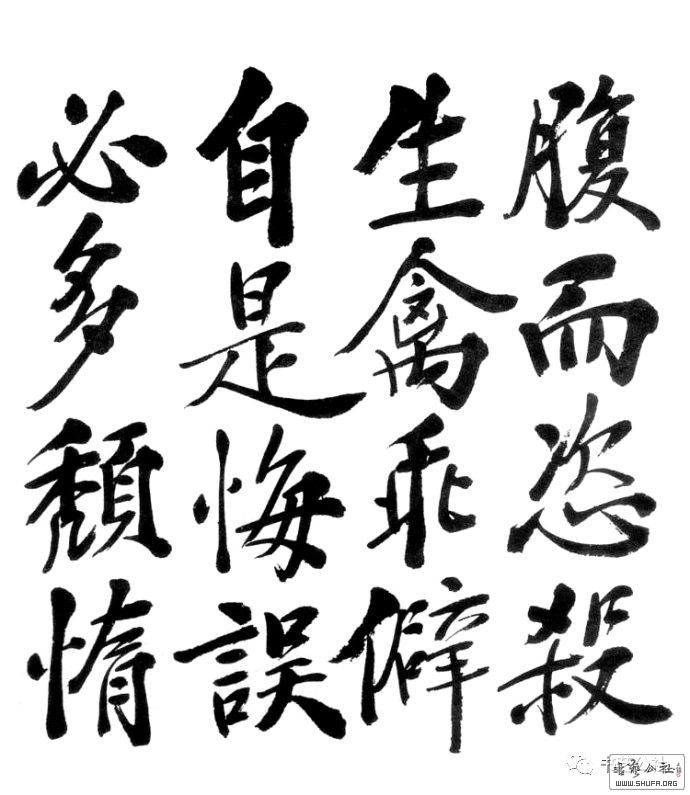 腹而恣殺
生禽乖僻
自是悔誤
必多頹惰
書藝公社
WWW.SHUFA.ORG